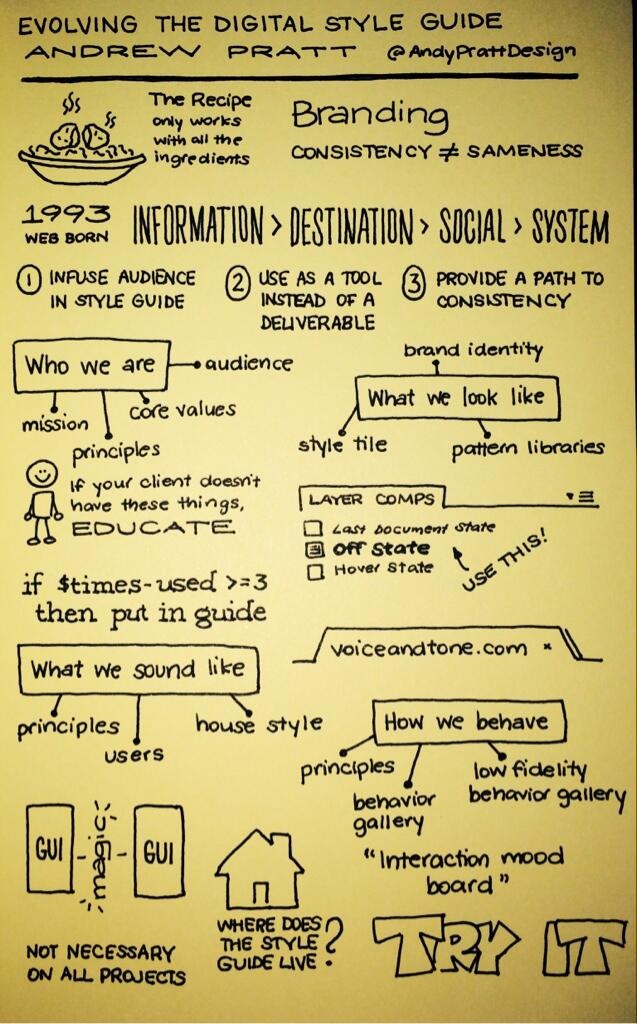 EVOLVING THE DIGITAL STYLE GUIDE
ANDREW PRATT @AndyPrattDesign
The Recipe
only works
with all the
ingredients
Branding
CONSISTENCY ≠ SAMENESS
1993
WEB BORN
INFORMATION > DESTINATION > SOCIAL > SYSTEM
1 INFUSE AUDIENCE
IN STYLE GUIDE
2 USE AS A TOOL
INSTEAD OF A
DELIVERABLE
3 PROVIDE A PATH TO
CONSISTENCY
Who we are
audience
mission
core values
principles
brand identity
What we look like
style tile
pattern libraries
If your client doesn't
have these things,
EDUCATE
LAYER COMPS
Last Document State
Off State
Hover State
USE THIS!
if $times-used >=3
then put in guide
voiceandtone.com ×
What we sound like
principles
users
house style
How we behave
principles
behavior
gallery
low fidelity
behavior gallery
"Interaction mood
board"
GUI
magic
GUI
NOT NECESSARY
ON ALL PROJECTS
WHERE DOES
THE STYLE
GUIDE LIVE?
TRY IT